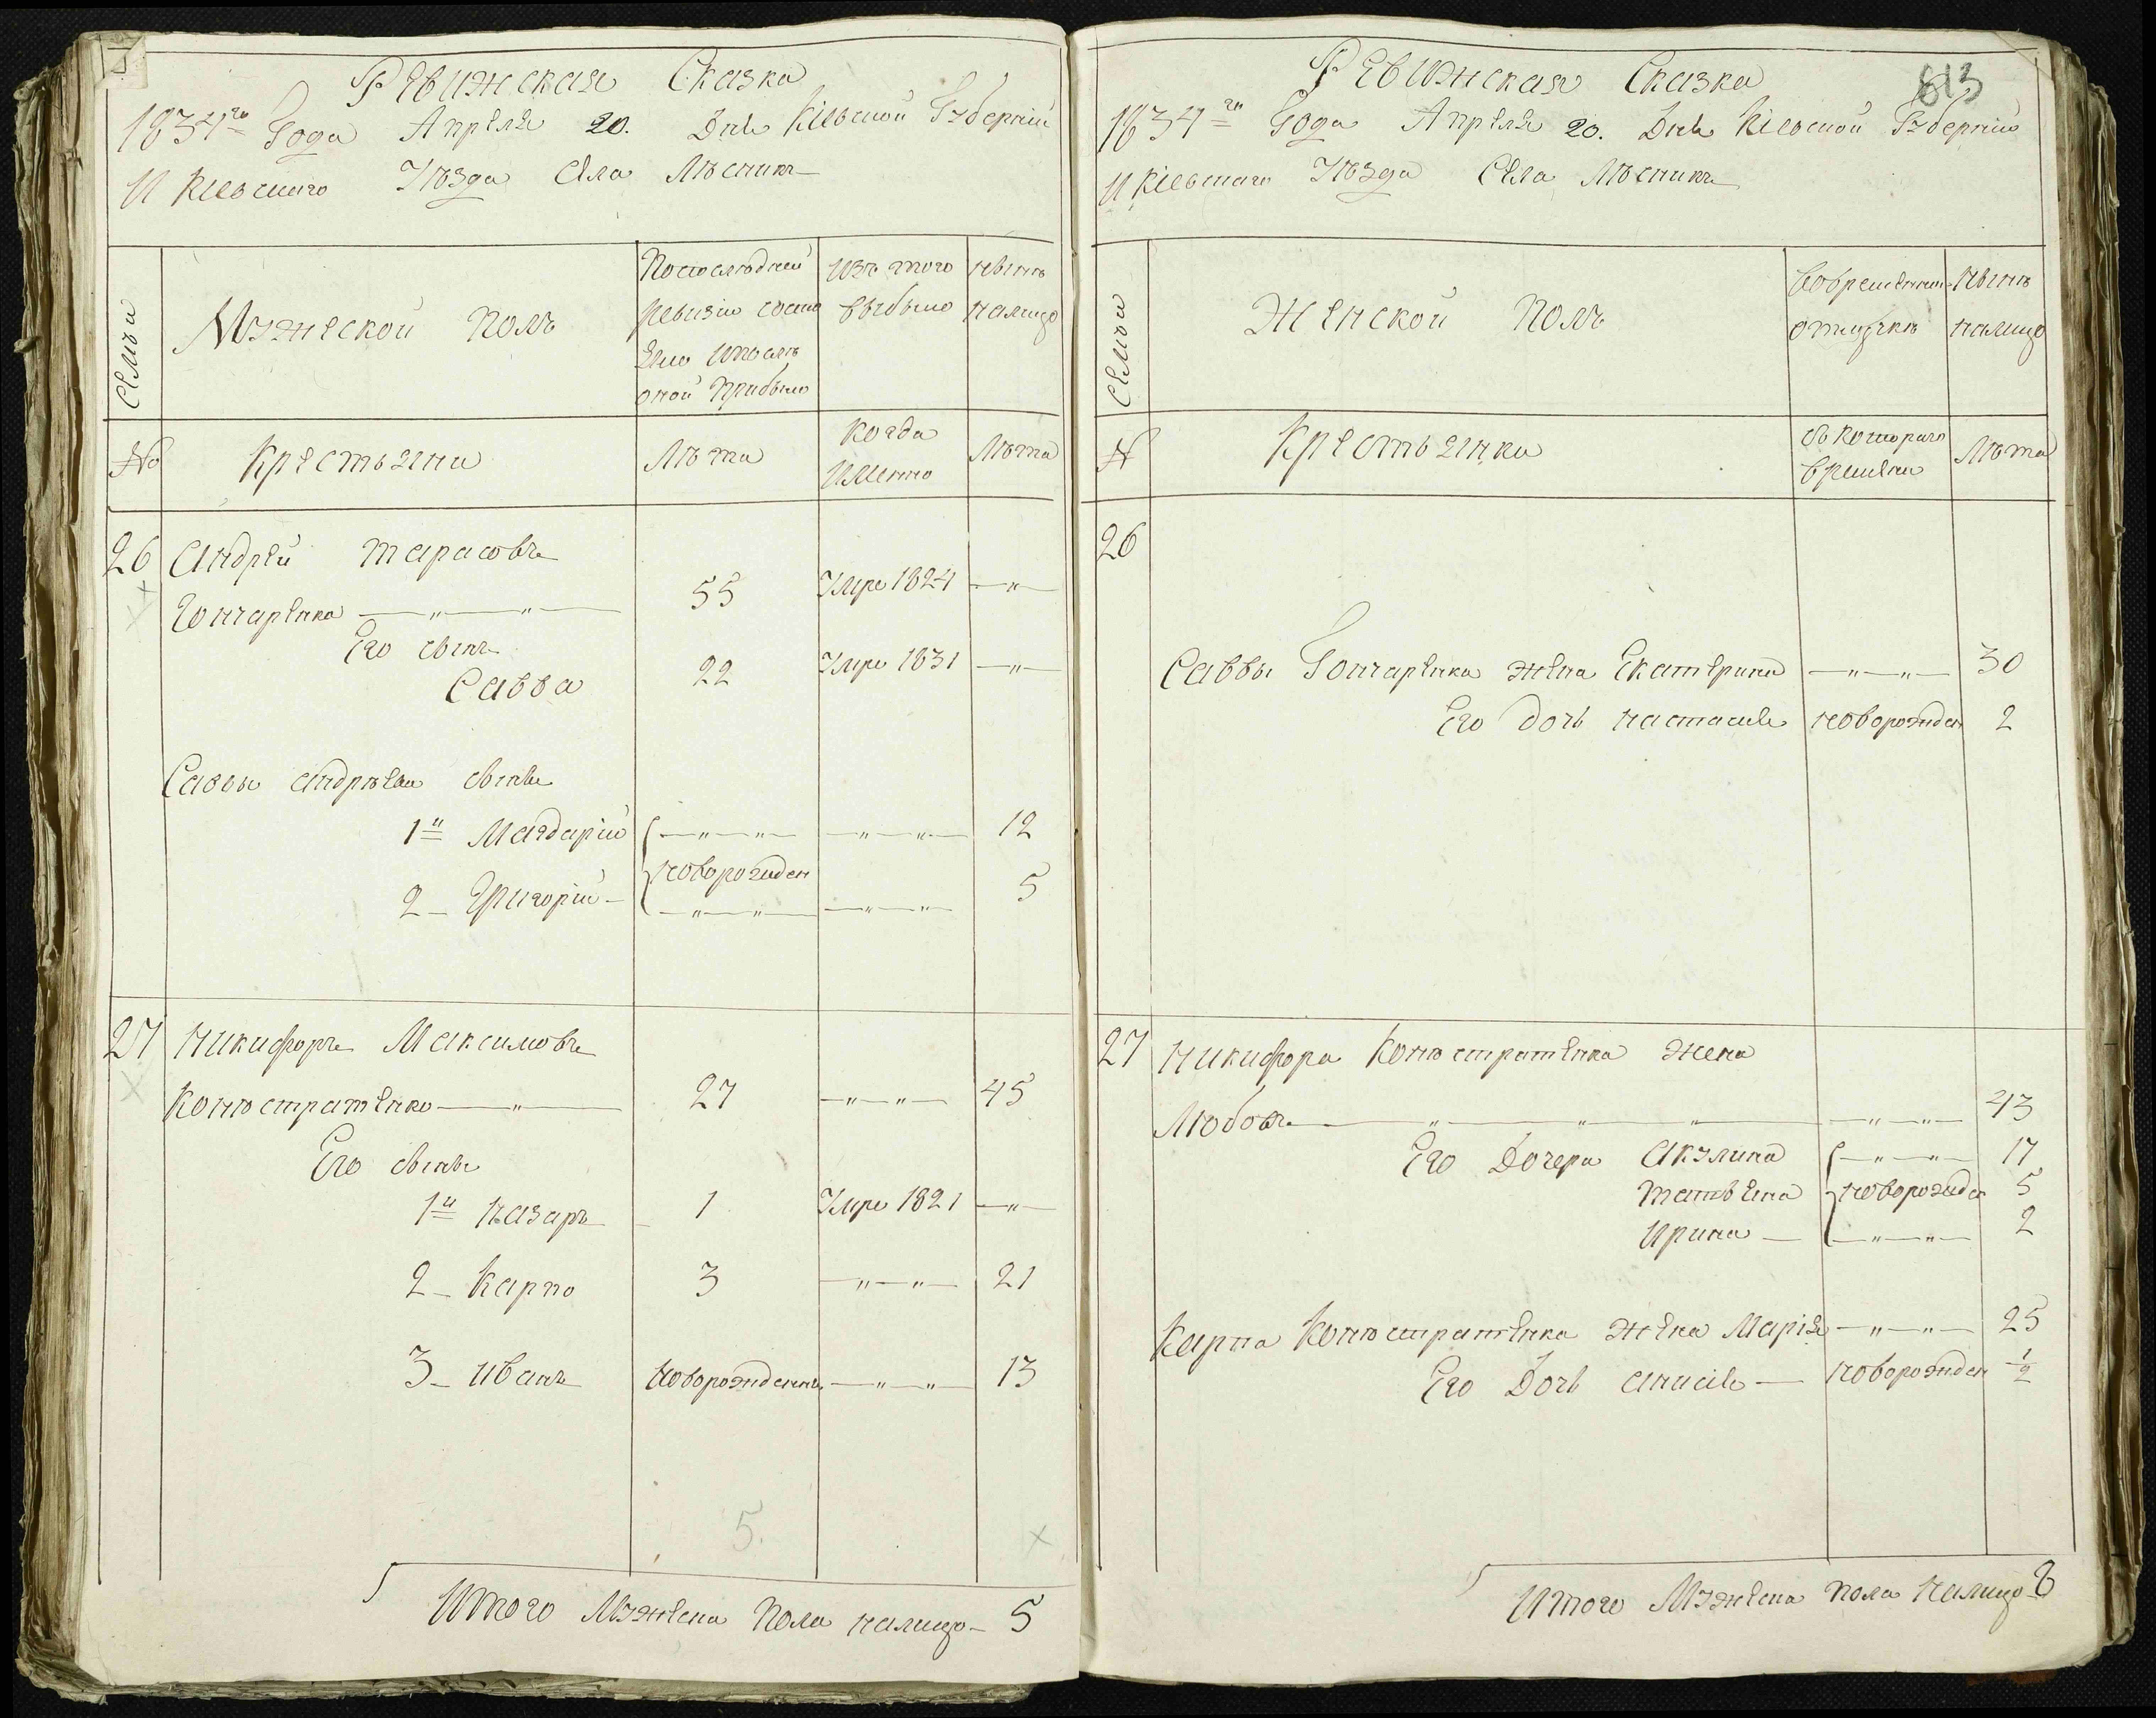 Ревижская Сказка
1834го Года Апреля 20. Дня Кіевской Губерніи
И Кіевскаго Уезда Села Лесникъ
Семьи
Мужеской Полъ
По последней
ревизіи состо
яло и после
оной прибыло
изъ того
выбыло
ныне
налицо
№
Крестьяни
Лета
Когда
Именно
Лета
26
Андрей Тарасовъ
Гончаренко
55
Умре 1824
Его сынъ
Савва
22
Умре 1831
Саввы Андреева сынъи
1й Магдарій
12
новорожден
2 Григорій
5
27
Никифоръ Максимовъ
Конюстратенко
27
45
Его сыны
1й Назаръ
1
Умре 1821
2 Карпо
3
21
3 Иванъ
Новорожденны
13
5.
Итого Мужеска Пола налицо 5
613
Ревижская Сказка
1834го Года Апреля 20. Дня Кіевской Губерніи
И Кіевскаго Уезда Села Лесникъ
Семьи
Женской Полъ
Вовременной
отлучке
Ныне
налицо
№
Крестьянки
Съ котораго
времени
Лета
26
Саввы Гончаренка жена Екатерина
30
Его дочь Настасия
новорожден
2
27
Никифора Конюстратенка жена
Любовъ
43
Его Дочери Акулина
17
Татьяна
новорожден
5
Ирина
2
Карпа Конюстратенка жена Марія
25
Его Дочь Анисия
новорожден
1/2
Итого Мужеска Пола Налицо 8